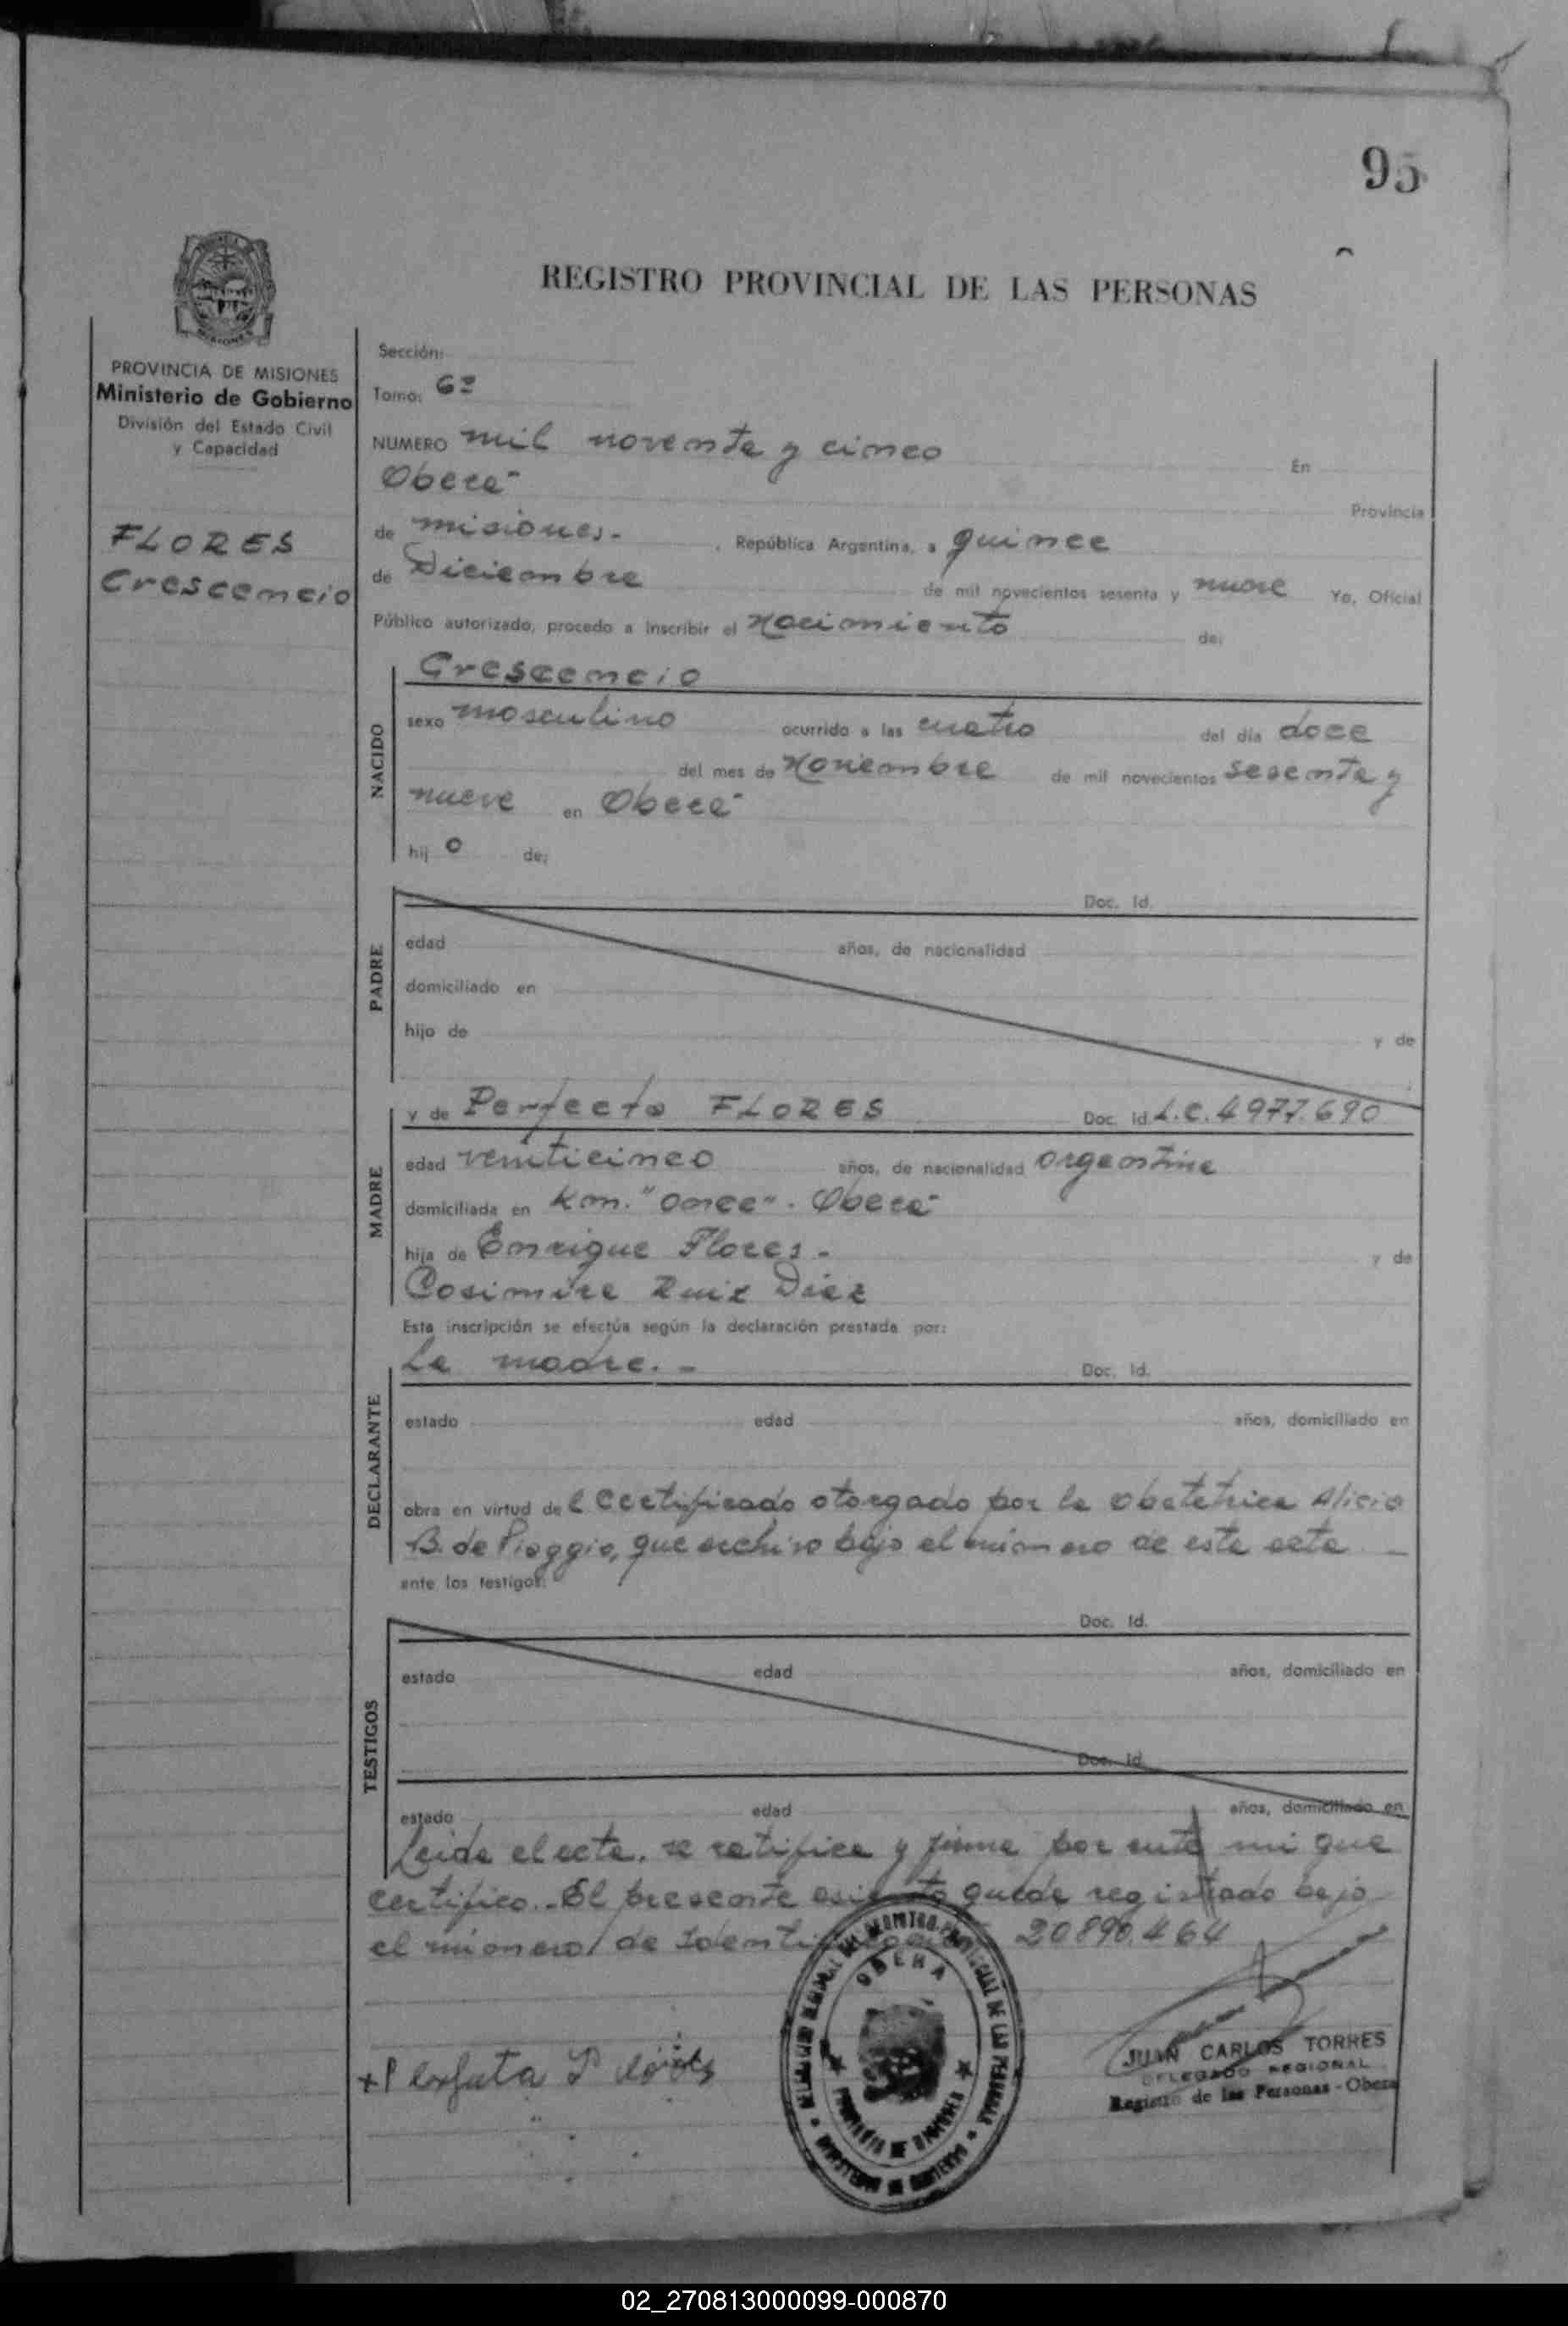 95
REGISTRO PROVINCIAL DE LAS PERSONAS
PROVINCIA DE MISIONES
Ministerio de Gobierno
División del Estado Civil
y Capacidad
FLORES
Crescencio
Sección:
Tomo: 6º
NUMERO mil noventa y cinco En
Oberá
Provincia
de misiones.- , República Argentina, a quince
de Diciembre de mil novecientos sesenta y nueve Yo, Oficial
Público autorizado, procedo a inscribir el Nacimiento de:
NACIDO
Crescencio
sexo masculino ocurrido a las cuatro del día doce
del mes de Noviembre de mil novecientos sesenta y
nueve en Oberá
hij o de:
PADRE
Doc. Id.
edad años, de nacionalidad
domiciliado en
hijo de y de
MADRE
y de Perfecta FLORES Doc. Id. L.C. 4977.690
edad veinticinco años, de nacionalidad argentina
domiciliada en Km. "Once". Oberá
hija de Enrique Flores.- y de
Casimira Ruiz Diaz
Esta inscripción se efectúa según la declaración prestada por:
DECLARANTE
La madre.- Doc. Id.
estado edad años, domiciliado en
obra en virtud del certificado otorgado por la obstetrica Alicia
B. de Piaggio, que archivo bajo el número de esta acta
ante los testigos:
TESTIGOS
Doc. Id.
estado edad años, domiciliado en
Doc. Id.
estado edad años, domiciliado en
Leida el acta, se ratifica y firma por ante mi que
certifico.- El presente asiento queda registrado bajo
el número de 20890.464
OBERA
PROVINCIA DE MISIONES
MINISTERIO DE GOBIERNO
JUAN CARLOS TORRES
DELEGADO REGIONAL
Registro de las Personas - Obera
02_270813000099-000870